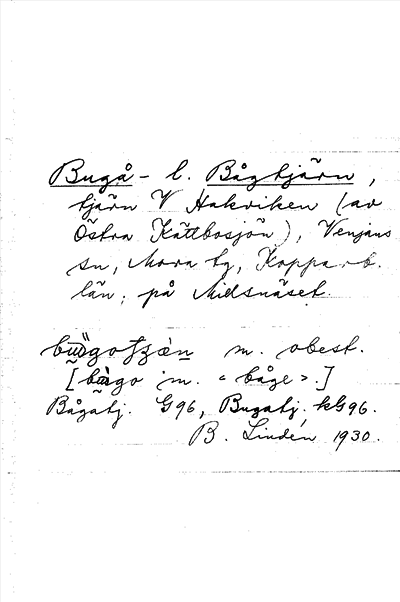 Bugå- l. Bågtjärn,
tjärn V Hakviken (av
Östra Kättbosjön), Venjans
sn, Mora tg, Kopparb.
län; på Midsnäset.
m. obest.
[ m. "båge".]
Bågatj. G96, Bugatj. kG96.
B. Lindén 1930.